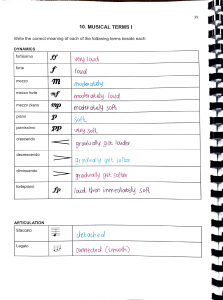 39
10. MUSICAL TERMS I
Write the correct meaning of each of the following terms beside each:
DYNAMICS
fortissimo ff very loud
forte f loud
mezzo m moderately
mezzo forte mf moderately loud
mezzo piano mp moderately soft
piano p soft
pianissimo pp very soft
crescendo gradually get louder
decrescendo gradually get softer
diminuendo gradually get softer
fortepiano fp loud then immediately soft
ARTICULATION
Staccato detached
Legato connected (smooth)